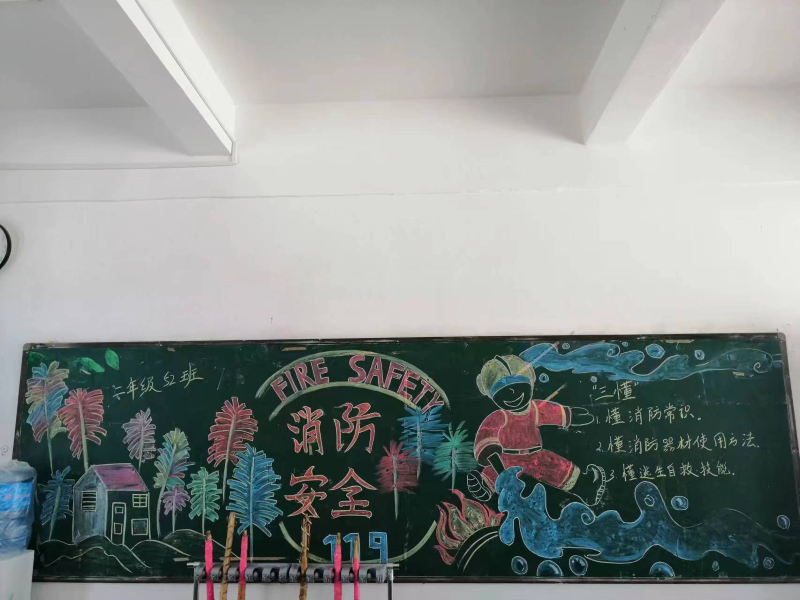 六年级52班
FIRE SAFETY
消防
安全
119
"三懂"
1.懂消防常识.
2.懂消防器材使用方法.
3.懂逃生自救技能.